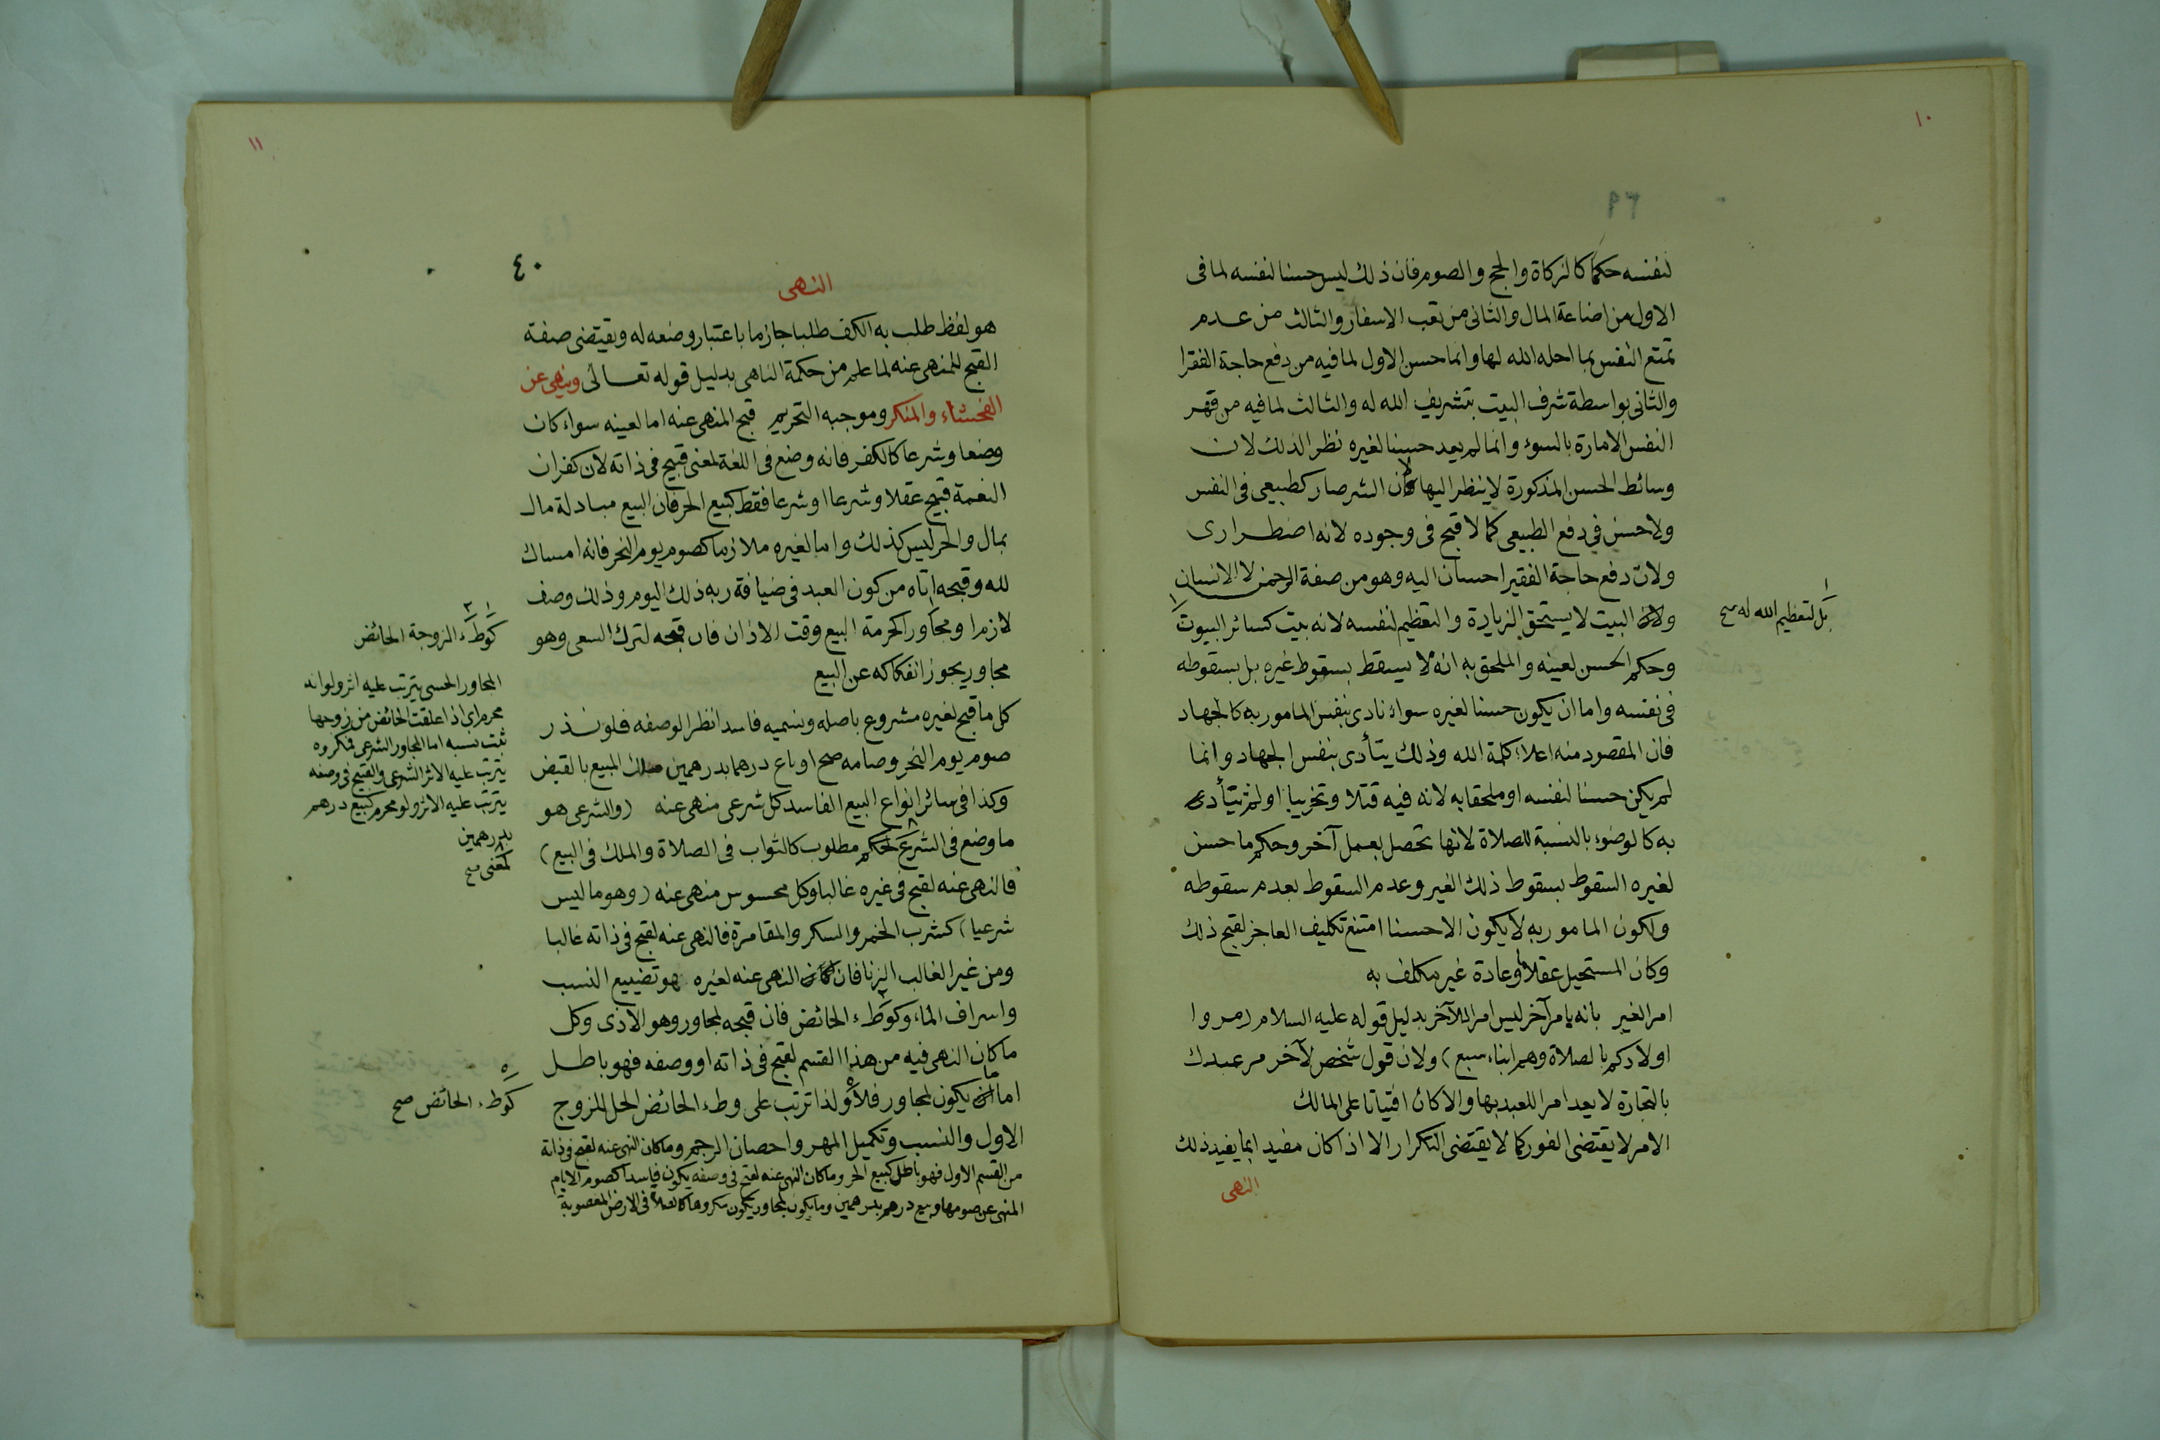 ١٠
٣٩
لنفسه حكما كالزكاة والحج والصوم فان ذلك ليس حسنا لنفسه لما فى
الاول من اضاعة المال والثانى من تعب الاسفار والثالث من عدم
تمتع النفس بما احله الله لها وانما حسن الاول لما فيه من دفع حاجة الفقرا
والثانى بواسطة شرف البيت بتشريف الله له والثالث لما فيه من قهر
النفس الامارة بالسوء وانما لم يعد حسنا لغيره نظرا لذلك لان
وسائط الحسن المذكورة لا ينظر اليها لان الشر صار كطبيعى فى النفس
ولا حسن فى دفع الطبيعى كما لا قبح فى وجوده لانه اضطرارى
ولان دفع حاجة الفقير احسان اليه وهو من صفة الرحمن لا الانسان
ولان البيت لا يستحق الزيارة والتعظيم لنفسه لانه بيت كسائر البيوت
١
بل لتعظيم الله له صح
وحكم الحسن لعينه والملحق به انه لا يسقط بسقوط غيره بل بسقوطه
فى نفسه واما ان يكون حسنا لغيره سواء تادى بنفس المامور به كالجهاد
فان المقصود منه اعلاء كلمة الله وذلك يتأدى بنفس الجهاد وانما
لم يكن حسنا لنفسه او ملحقا به لانه فيه قتلا وتخريبا او لم يتأدى
به كالوضوء بالنسبة للصلاة لانها تحصل بعمل آخر وحكم ما حسن
لغيره السقوط بسقوط ذلك الغير وعدم السقوط بعدم سقوطه
ولكون المامور به لا يكون الا حسنا امتنع تكليف العاجز لقبح ذلك
وكان المستحيل عقلا او عادة غير مكلف به
امر الغير بانه يامر آخر ليس امرا للآخر بدليل قوله عليه السلام (مروا
اولادكم بالصلاة وهم ابناء سبع) ولان قول شخص لآخر مر عبدك
بالتجارة لا يعد امرا للعبد بها والا كان افتياتا على المالك
الامر لا يقتضى الفور كما لا يقتضى التكرار الا اذا كان مفيد بما يفيد ذلك
النهى
١١
٤٠
النهى
هو لفظ طلب به الكف طلبا جازما باعتبار وضعه له ويقتضى صفة
القبح للمنهى عنه لما علم من حكمة الناهى بدليل قوله تعالى وينهى عن
الفحشاء والمنكر وموجبه التحريم قبح المنهى عنه اما لعينه سواء كان
وضعا وشرعا كالكفر فانه وضع فى اللغة لمعنى قبيح فى ذاته لان كفران
النعمة قبيح عقلا وشرعا او شرعا فقط كبيع الحر فان البيع مبادلة مال
بمال والحر ليس كذلك واما لغيره ملازما كصوم يوم النحر فانه امساك
لله وقبحه اتاه من كون العبد فى ضيافة ربه ذلك اليوم وذلك وصف
لازم او مجاورا كحرمة البيع وقت الاذان فان قبحه لترك السعى وهو
مجاور يجوز انفكاكه عن البيع
كل ما قبح لغيره مشروع باصله ونسميه فاسدا نظرا لوصفه فلو نذر
صوم يوم النحر وصامه صح او باع درهما بدرهمين ملك المبيع بالقبض
وكذا فى سائر انواع البيع الفاسد كل شرعى منهى عنه (والشرعى هو
ما وضع فى الشرع لحكم مطلوب كالثواب فى الصلاة والملك فى البيع)
فالنهى عنه لقبح فى غيره غالبا وكل محسوس منهى عنه (وهو ما ليس
شرعيا) كشرب الخمر والسكر والمقامرة فالنهى عنه لقبح فى ذاته غالبا
ومن غير الغالب الزنا فان النهى عنه لغيره هو تضييع النسب
واسراف الماء وكوطء الحائض فان قبحه لمجاور وهو الاذى وكل
ما كان النهى فيه من هذا القسم لقبح فى ذاته او وصفه فهو باطل
اما ما يكون لمجاور فلا ولذا ترتب على وطء الحائض الحل للزوج
الاول والنسب وتكميل المهر واحصان الرجم وما كان النهى عنه لقبح فى ذاته
من القسم الاول فهو باطل كبيع الحر وما كان النهى عنه لقبح فى وصفه يكون فاسدا كصوم الايام
المنهى عن صومها وبيع درهم بدرهمين وما يكون لمجاور يكون مكروها كالصلاة فى الارض المغصوبة
١ ٢
كوطء الزوجة الحائض
المجاور الحسى يترتب عليه اثر ولو انه
محرم اى اذا علقت الحائض من زوجها
ثبت نسبه اما المجاور الشرعى فمكروه
يترتب عليه الاثر الشرعى والقبيح فى وصفه
يترتب عليه الاثر ولو محرم كبيع درهم
بدرهمين
لمعنى صح
٥
كوطء الحائض صح